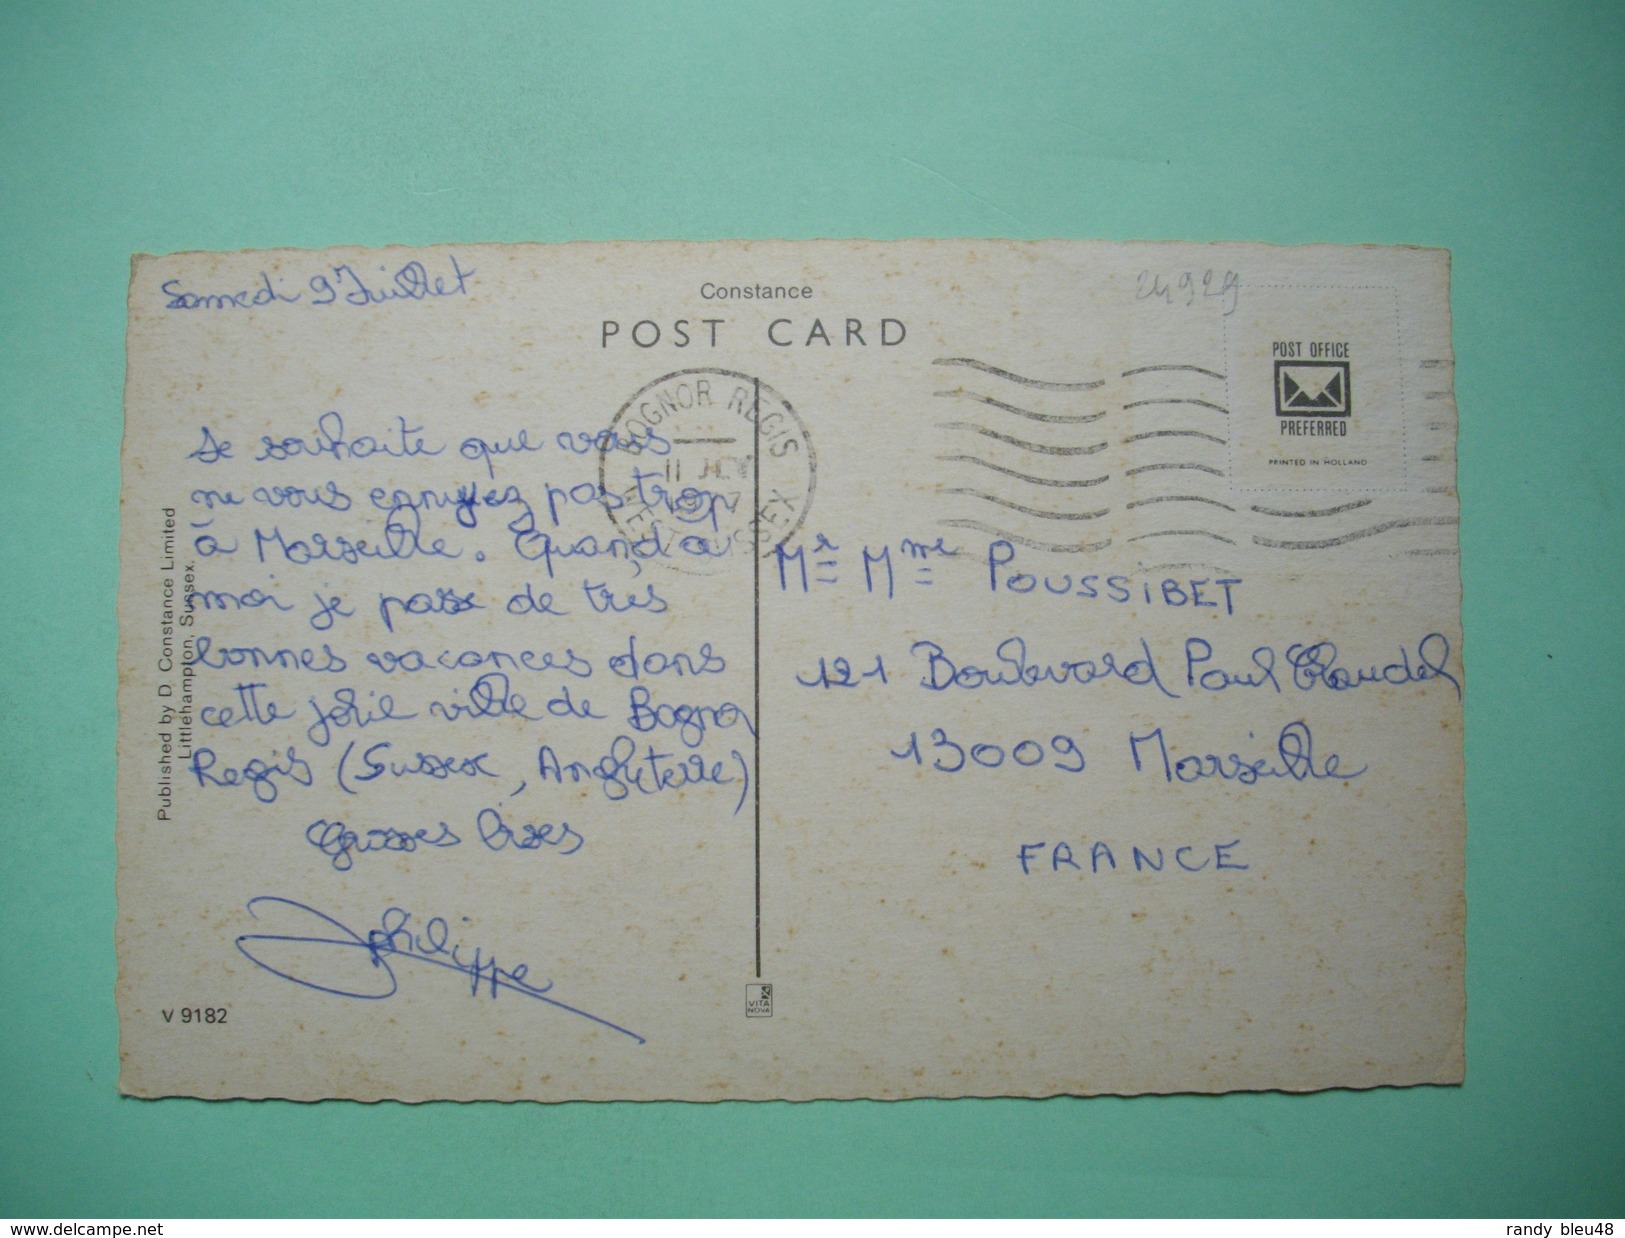 Samedi 9 Juillet
Constance
POST CARD
24929
POST OFFICE
PREFERRED
PRINTED IN HOLLAND
BOGNOR REGIS
11 JLY
WEST SUSSEX
Je souhaite que vous
ne vous ennuyez pas trop
à Marseille. Quand a
moi je passe de très
bonnes vacances dans
cette jolie ville de Bognor
Regis (Sussex, Angleterre)
Grosses Bises
Philippe
Mr Mme POUSSIBET
121 Boulevard Paul Claudel
13009 Marseille
FRANCE
Published by D. Constance Limited
Littlehampton, Sussex.
V 9182
VITA
NOVA
www.delcampe.net
randy_bleu48